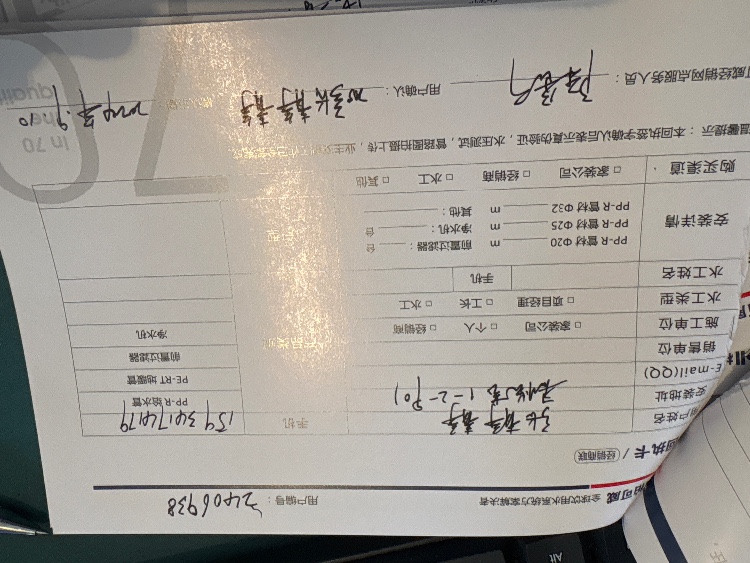 可威 全球饮用水系统方案解决者
用户编号：2406938
回执卡 / 经销商联
用户姓名 手机 15934176179
安装地址 1-2-901
E-mail(QQ) PP-R 给水管
销售单位 PE-RT 地暖管
施工单位 □ 家装公司 □ 个人 □ 经销商 前置过滤器
水工类型 □ 项目经理 □ 工长 □ 水工 净水机
水工姓名 手机
安装详情
PP-R 管材 Φ20 m 前置过滤器： 台
PP-R 管材 Φ25 m 净水机： 台
PP-R 管材 Φ32 m 其他：
购买渠道 □ 家装公司 □ 经销商 □ 水工 □ 其他
温馨提示：本回执签字确认后表示真伪验证，水压测试，管路图拍摄上传，业主
威经销网点服务人员： 用户确认：
in 70
Alt